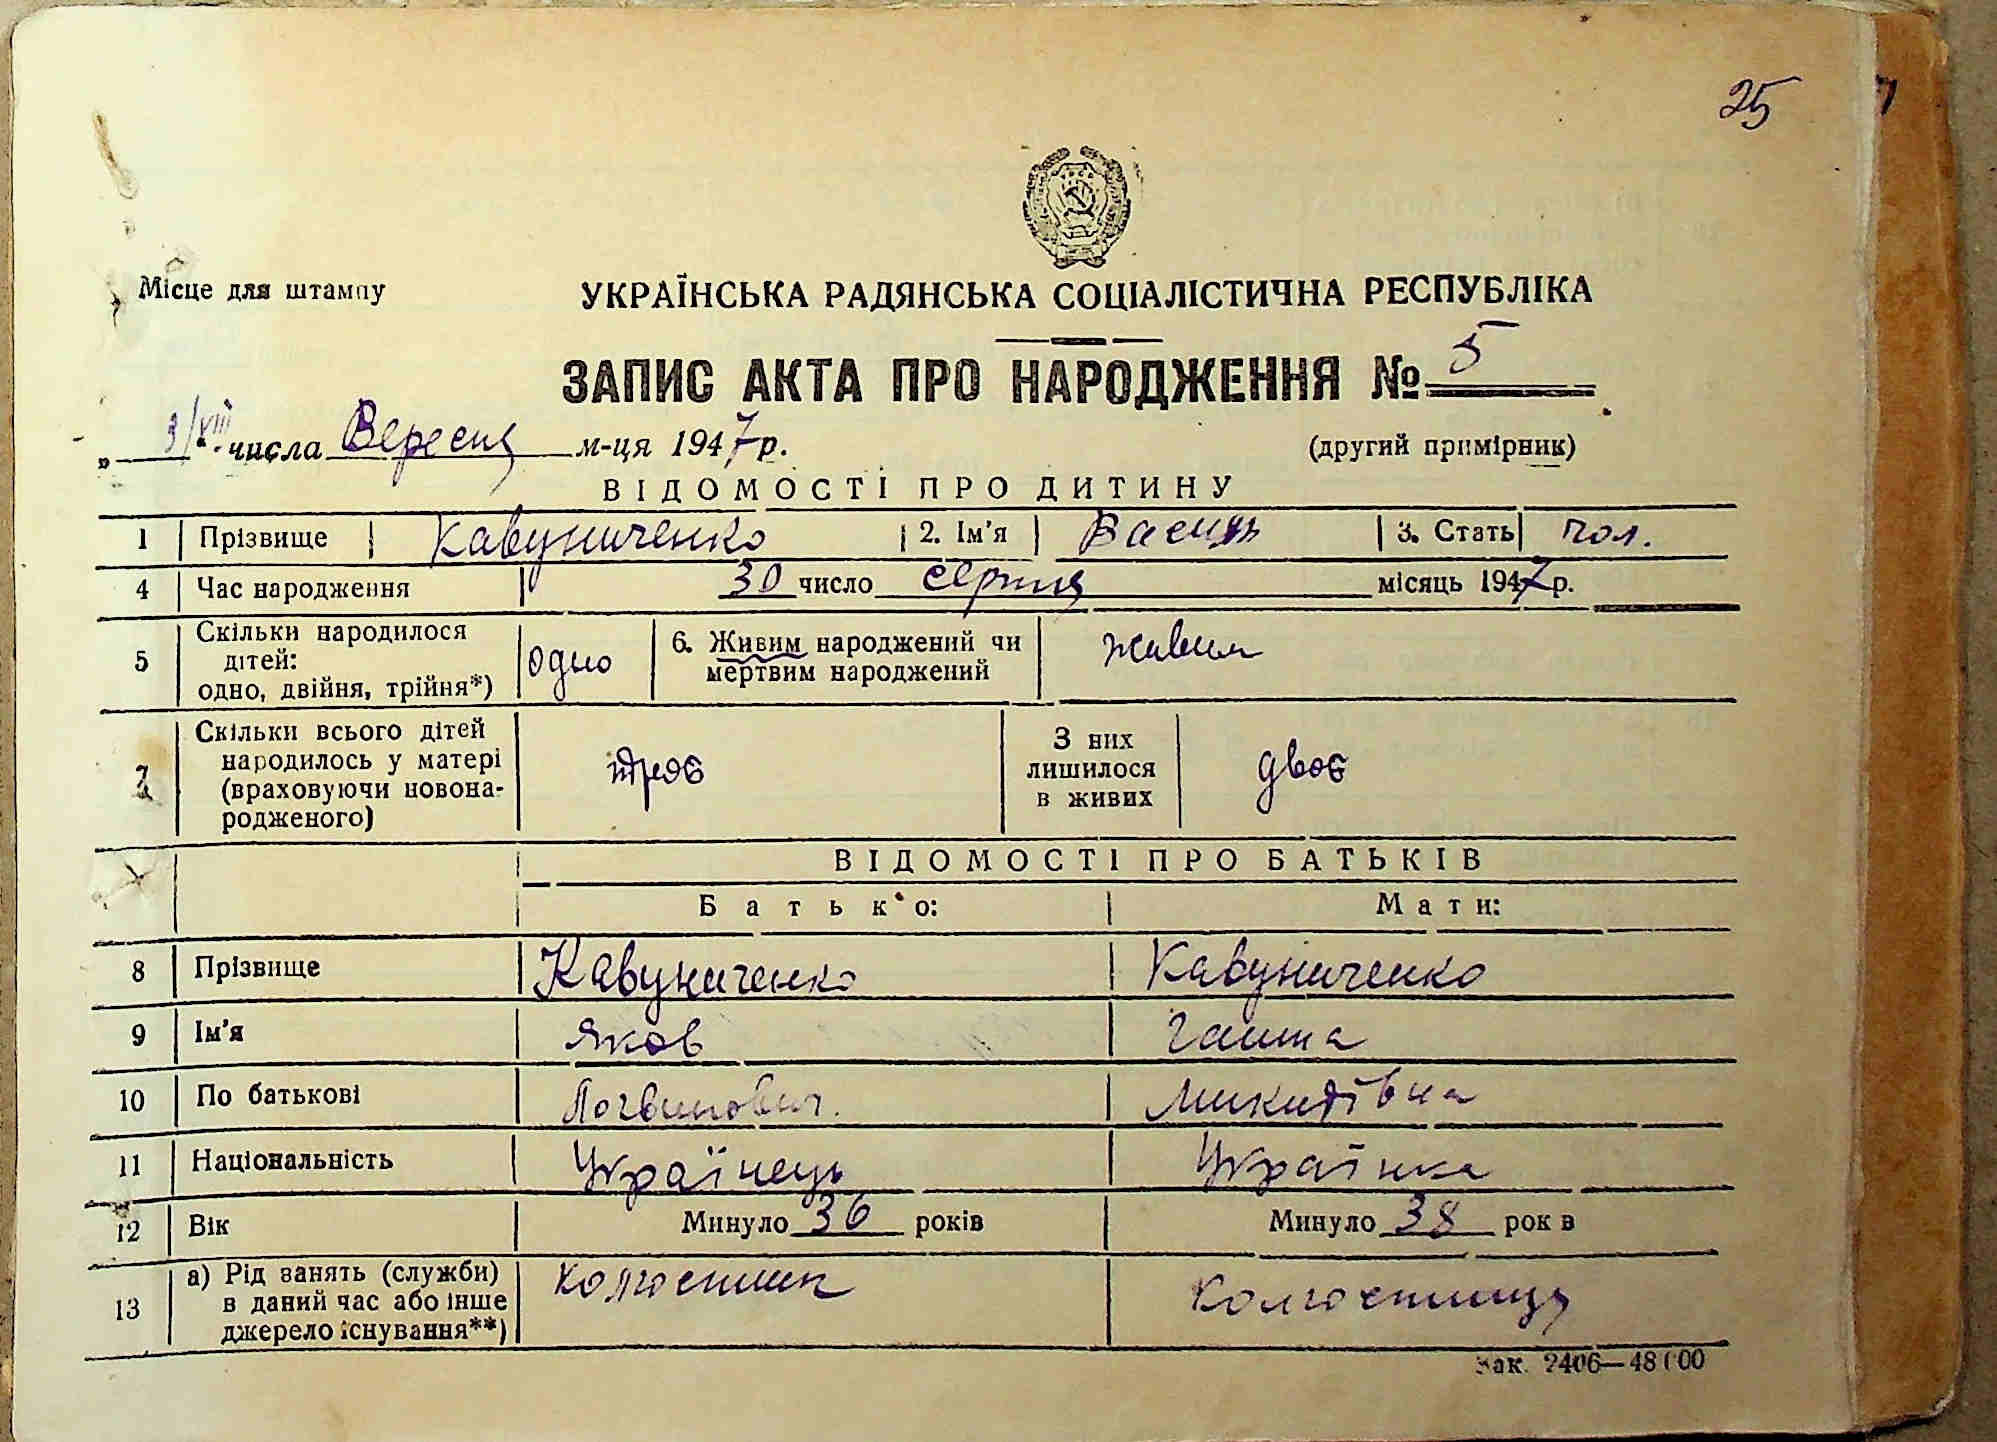 25
Місце для штампу
УКРАЇНСЬКА РАДЯНСЬКА СОЦІАЛІСТИЧНА РЕСПУБЛІКА
ЗАПИС АКТА ПРО НАРОДЖЕННЯ № 5
„ 3/VIII “ числа Вересня м-ця 1947 р. (другий примірник)
ВІДОМОСТІ ПРО ДИТИНУ
1 Прізвище Кавуниченко 2. Ім'я Василь 3. Стать чол.
4 Час народження 30 число серпня місяць 1947 р.
5 Скільки народилося дітей: одно, двійня, трійня*) одно 6. Живим народжений чи мертвим народжений живим
7 Скільки всього дітей народилось у матері (враховуючи новонародженого) троє З них лишилося в живих двоє
ВІДОМОСТІ ПРО БАТЬКІВ
Батько: Мати:
8 Прізвище Кавуниченко Кавуниченко
9 Ім'я Яков Ганна
10 По батькові Логвинович. Микитівна
11 Національність Українець Українка
12 Вік Минуло 36 років Минуло 38 рок в
13 а) Рід занять (служби) в даний час або інше джерело існування**) колгоспник колгоспниця
Зак. 2406—48100